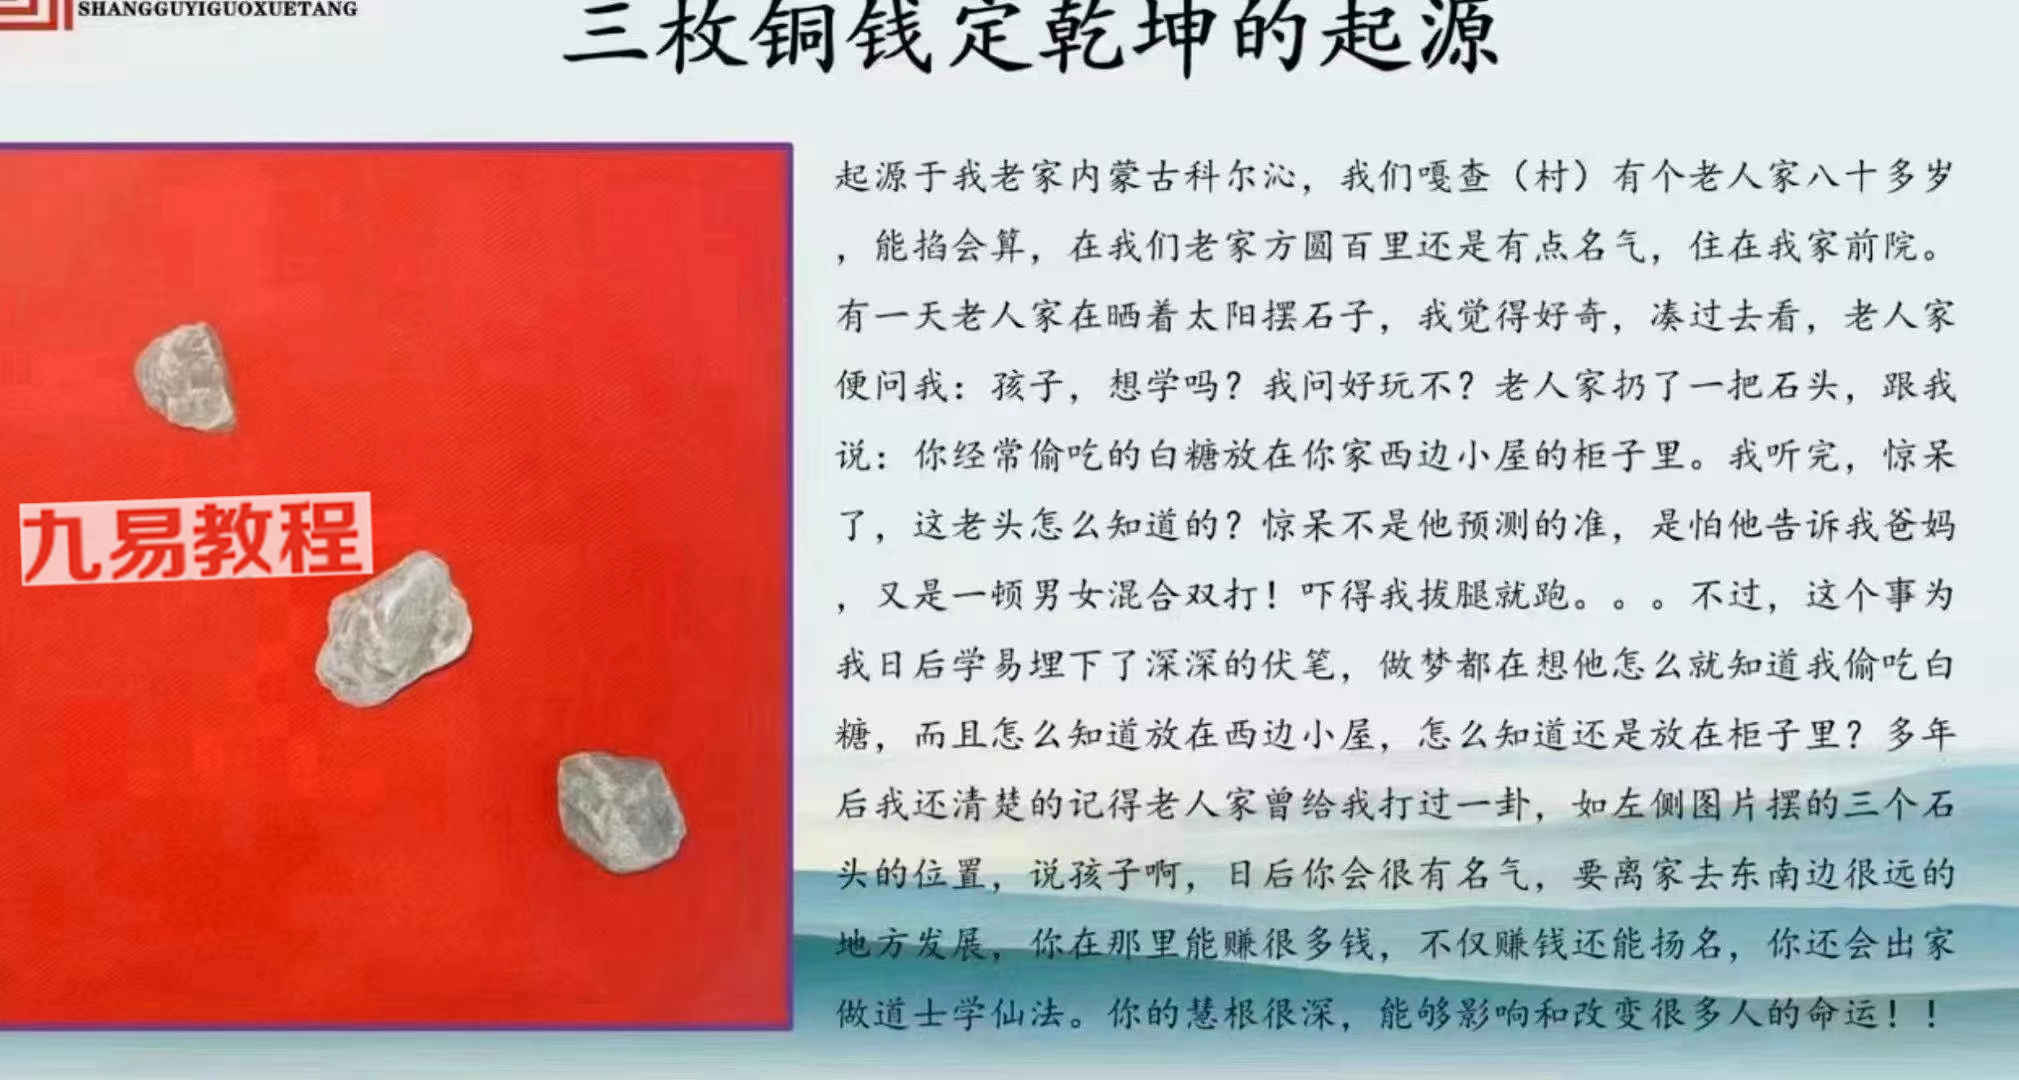 SHANGGUYIGUOXUETANG
三枚铜钱定乾坤的起源
九易教程
起源于我老家内蒙古科尔沁，我们嘎查（村）有个老人家八十多岁
，能掐会算，在我们老家方圆百里还是有点名气，住在我家前院。
有一天老人家在晒着太阳摆石子，我觉得好奇，凑过去看，老人家
便问我：孩子，想学吗？我问好玩不？老人家扔了一把石头，跟我
说：你经常偷吃的白糖放在你家西边小屋的柜子里。我听完，惊呆
了，这老头怎么知道的？惊呆不是他预测的准，是怕他告诉我爸妈
，又是一顿男女混合双打！吓得我拔腿就跑。。。不过，这个事为
我日后学易埋下了深深的伏笔，做梦都在想他怎么就知道我偷吃白
糖，而且怎么知道放在西边小屋，怎么知道还是放在柜子里？多年
后我还清楚的记得老人家曾给我打过一卦，如左侧图片摆的三个石
头的位置，说孩子啊，日后你会很有名气，要离家去东南边很远的
地方发展，你在那里能赚很多钱，不仅赚钱还能扬名，你还会出家
做道士学仙法。你的慧根很深，能够影响和改变很多人的命运！！